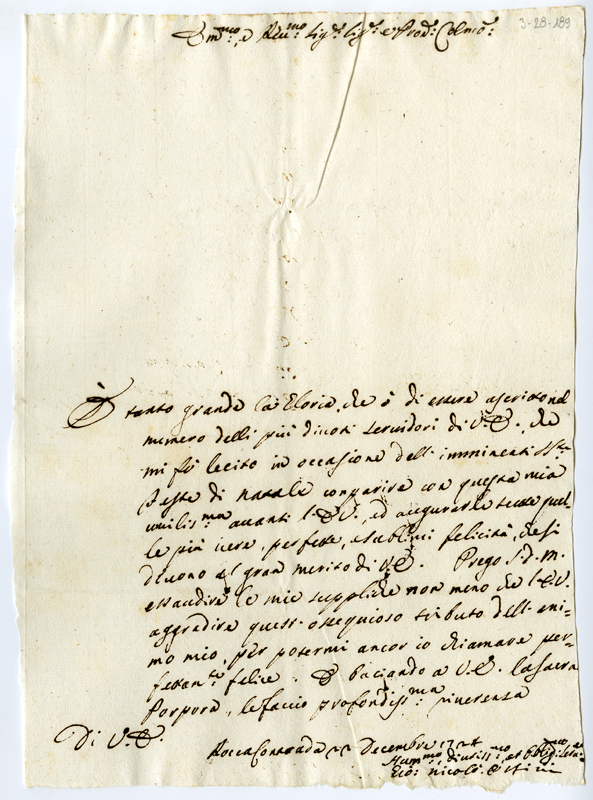 3-28-189
Em:mo, e Reu:mo Sig:r Sig:r e Prod: Colmo:
È tanto grande la Gloria, che ò di essere ascritto nel
numero delli più diuoti seruidori di V.E., che
mi fò lecito in occasione dell'imminenti SS:te
Feste di Natale comparire con questa mia
umilis:ma auanti l'E.V., ed augurarle tutte quel-
le più uere, perfette, e sublimi felicità, che si
diuono al gran merito di V.E. Prego S.D.M.
essaudire le mie suppliche non meno che l'E.V.
aggradire quest'ossequioso tributo dell'ani=
mo mio, per potermi ancor io chiamare per=
fettan:te felice. E baciando a V.E. la Sacra
Porpora, le faccio profondiss:ma riuerenza
Di V.E.
Roccacontrada 22 Decembre 1724
Hum:mo, diuotiss:mo, et Obblig:mo Seru:re
nicolò